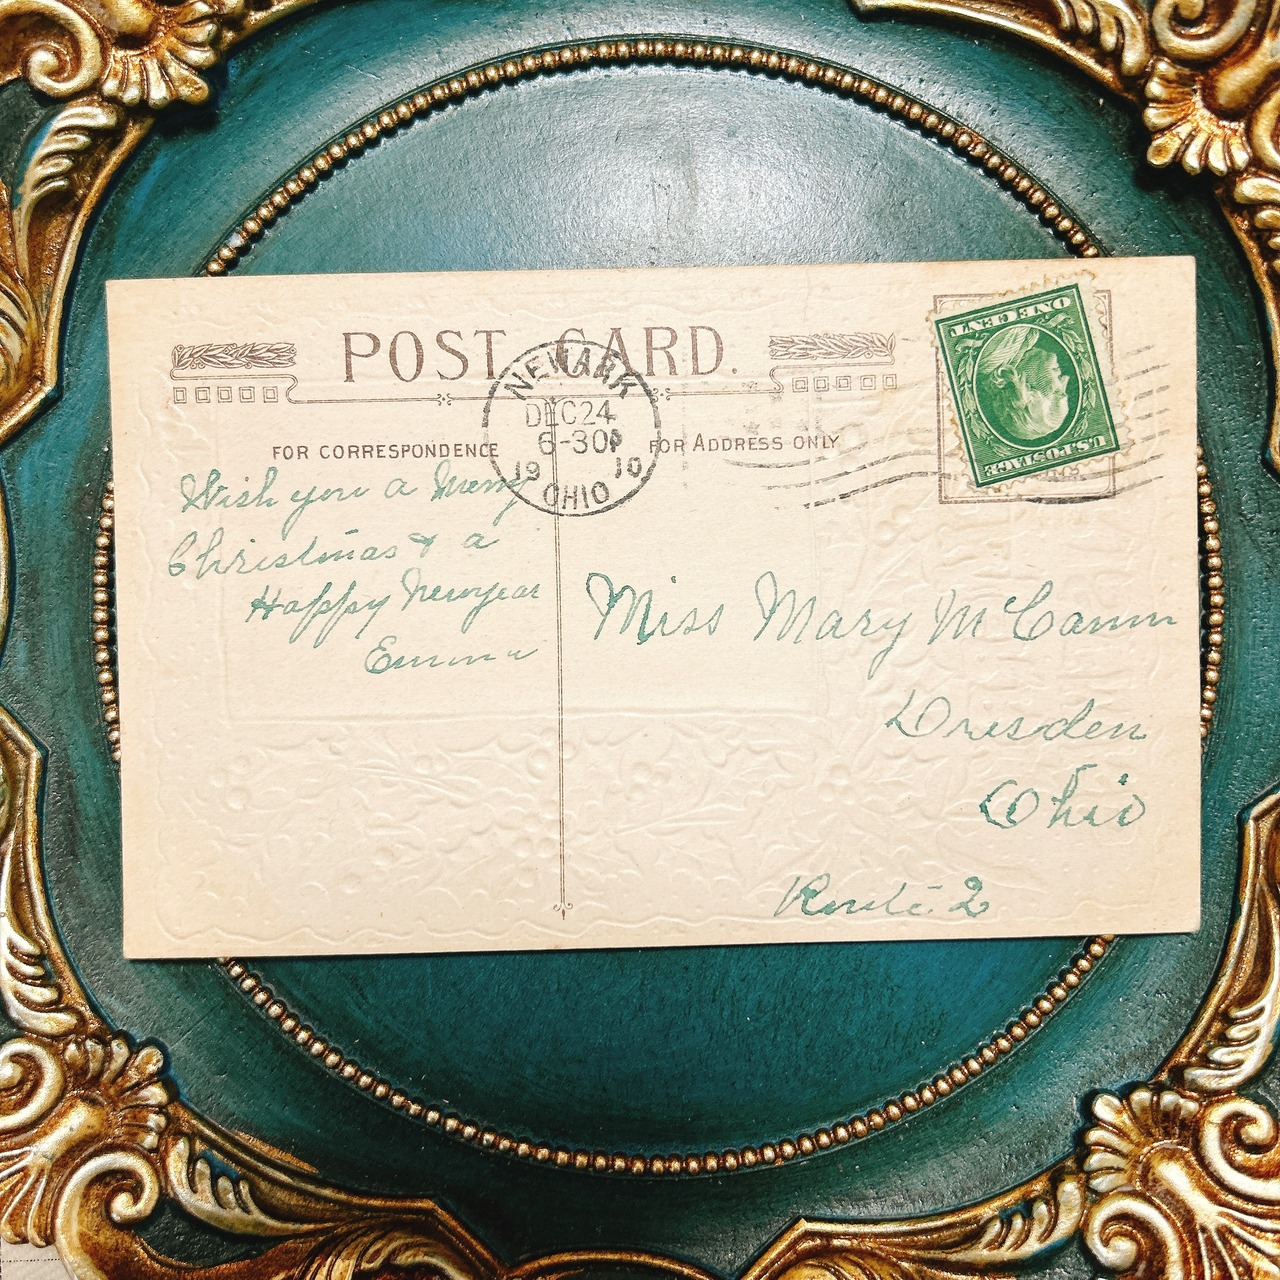 POST CARD.
NEWARK
DEC 24
6-30P
19 10
OHIO
FOR CORRESPONDENCE
FOR ADDRESS ONLY
ONE CENT
U.S. POSTAGE
Wish you a Merry
Christmas & a
Happy Newyear
Emma
Miss Mary McCamm
Dresden
Ohio
Route 2